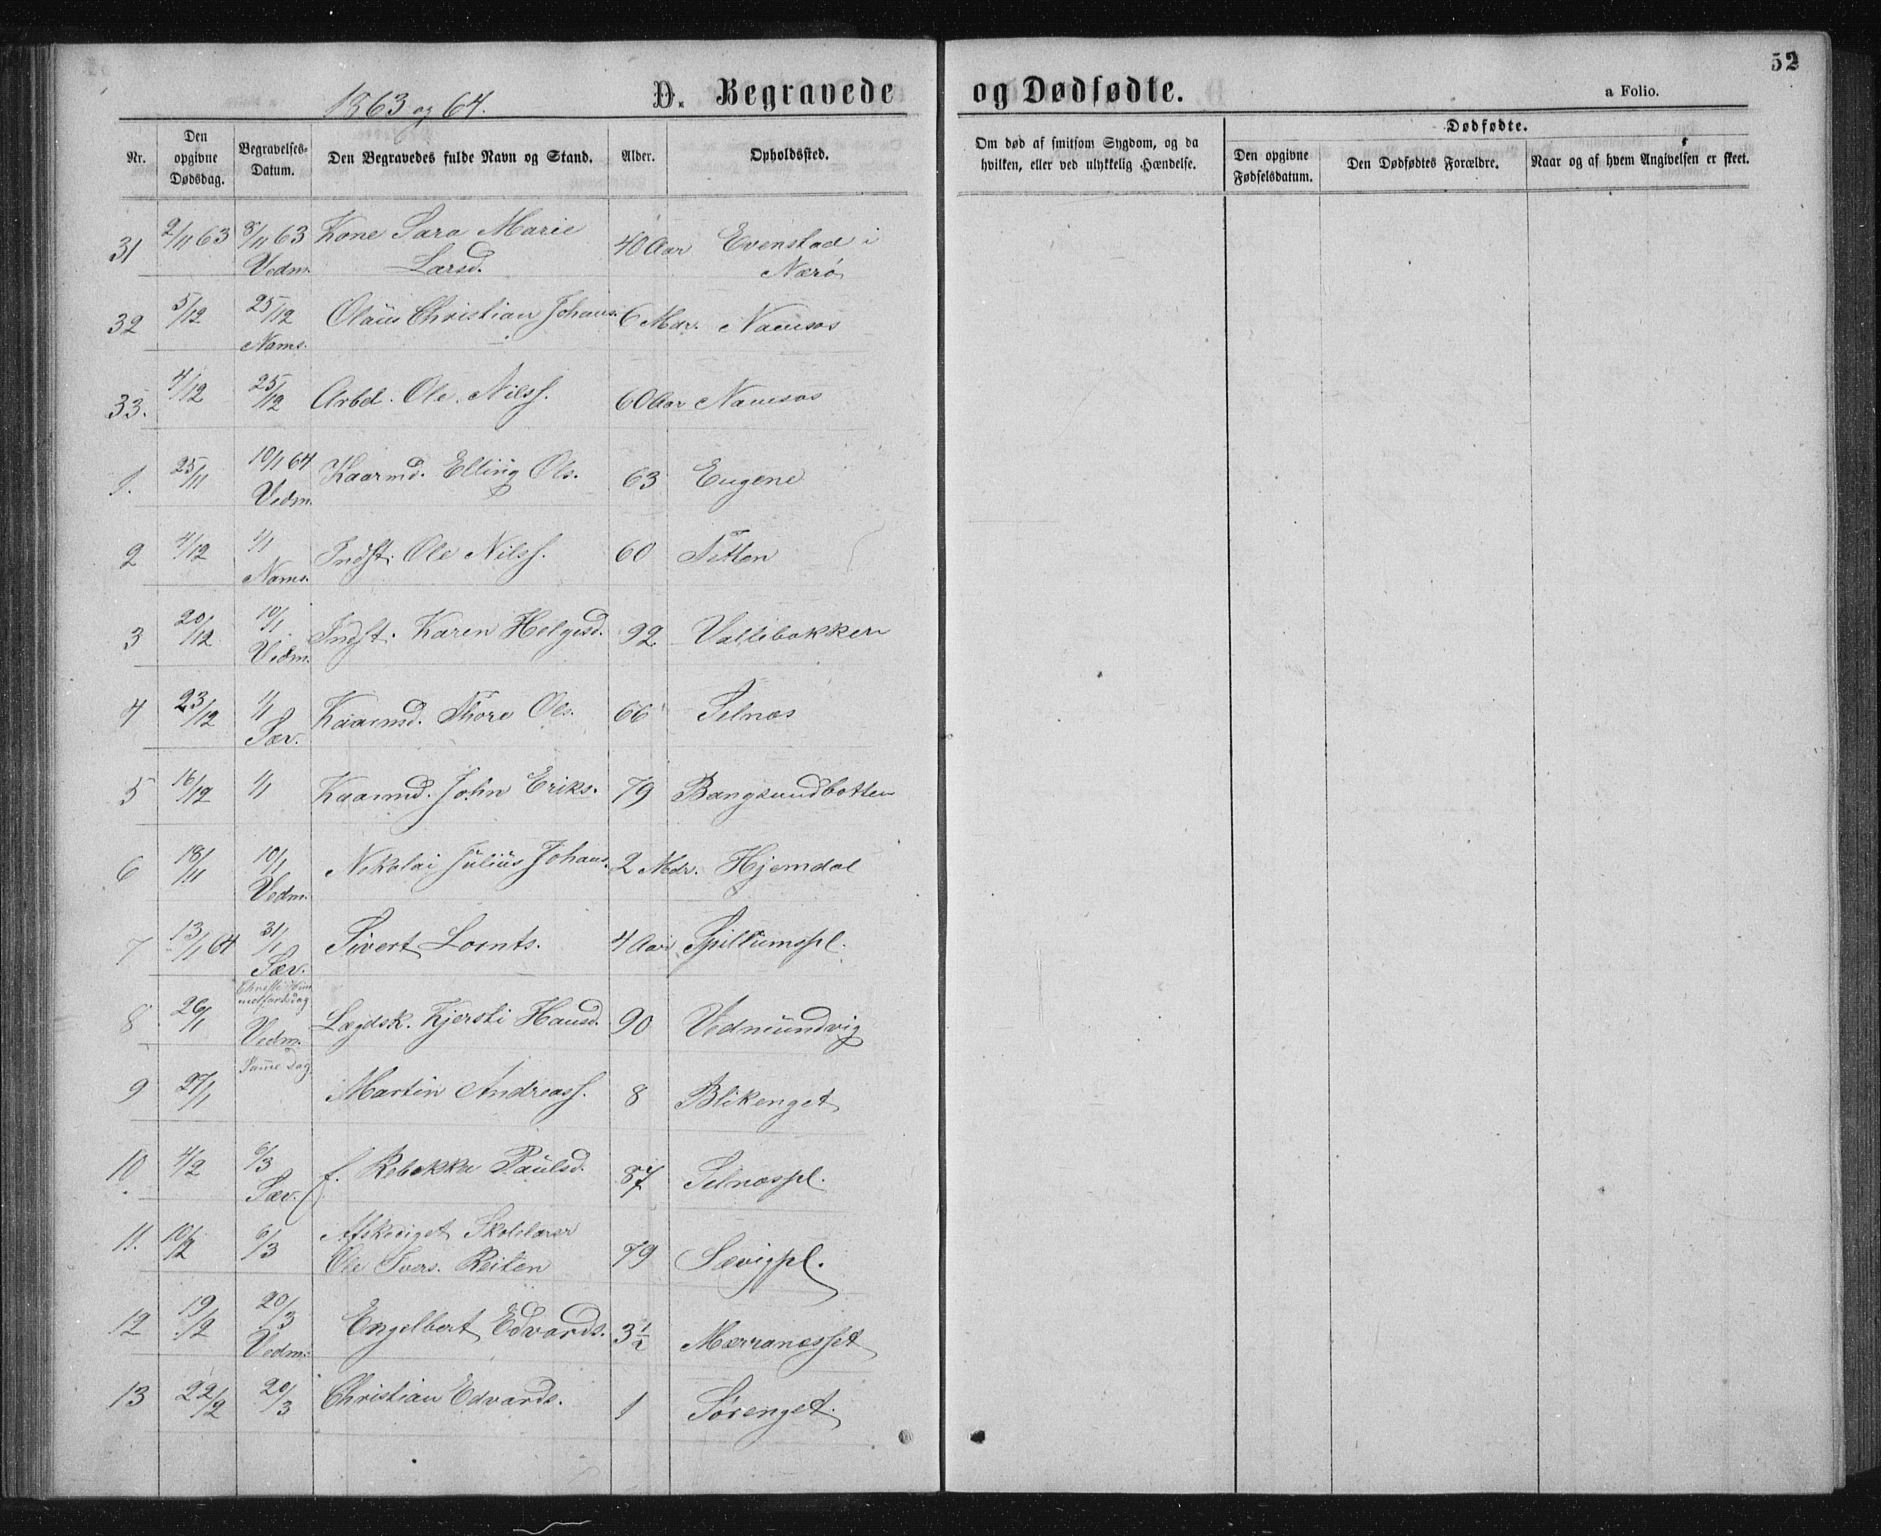 1863 og 64.
D. Begravede og Dødfødte.
52
a Folio.
Nr.
Den opgivne Dødsdag.
Begravelses-Datum.
Den Begravedes fulde Navn og Stand.
Alder.
Opholdssted.
Om død af smitsom Sygdom, og da hvilken, eller ved ulykkelig Hændelse.
Dødfødte.
Den opgivne Fødselsdatum.
Den Dødfødtes Forældre.
Naar og af hvem Angivelsen er skeet.
31 2/11 63 8/11 63 Kone Sara Marie 40 Aar Evenstad i
Vedm. Larsd. Nærø
32 5/12 25/12 Olaus Christian Johans. 6 Mdr. Namsos
Nams.
33. 4/12 25/12 Arbd. Ole Nilss. 60 Aar Namsos
1. 25/11 10/1 64 Kaarmd. Elling Ols. 63 Eugene
Vedm.
2 4/12 1/1 Indst. Ole Nilss. 60 Titten
Nams.
3 20/12 10/1 Indst. Karen Helgesd. 92 Vallebakken
Vedm.
4 23/12 1/1 Kaarmd. Thore Ols. 66 Selnæs
Sæv.
5 16/12 1/1 Kaarmd. John Eriks. 79 Bangsundbotten
6 18/11 10/1 Nikolai Julius Johans. 2 Mdr. Hjemdal
Vedm.
7 13/1 64 31/1 Sivert Lornts. 4 Aar Spillumspl.
Sæv.
8 26/1 Christi Himmelfartsdag Lægdsk. Kjersti Hansd. 90 Vedmundvig
Vedm.
9 27/1 Samme Dag. Martin Andreass. 8 Blikenget
10 4/2 6/3 f. Rebekka Paulsd. 87 Selnæspl.
Sæv.
11. 10/2 6/3 Afskediget Skolelærer
Ole Ivers. Reiten 79 Sævigpl.
12 19/2 20/3 Engelbert Edvards. 3 1/2 Mærranesset
Vedm.
13 22/2 20/3 Christian Edvards. 1 Sørenget.